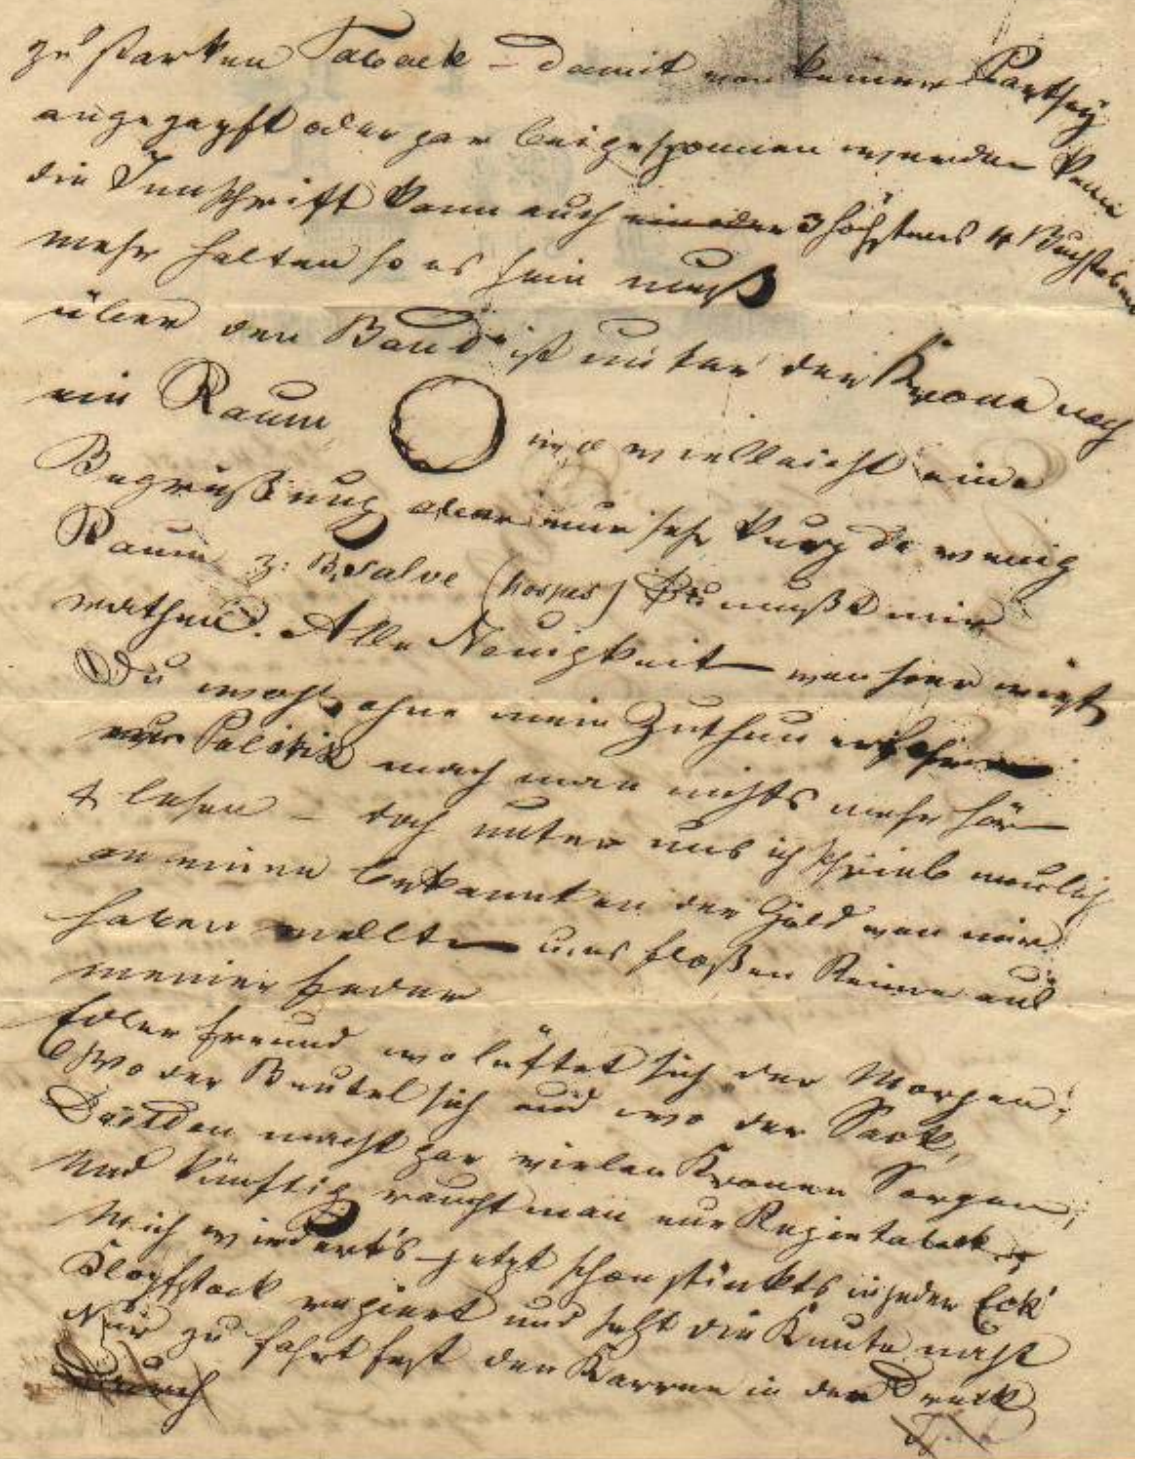 zu starken Taback – damit von keiner Parthey
angezapft oder gar beigesponnen werden kann
die Innschrift kann auch ein oder 3 höhstens 4 Buchstaben
mehr halten so es sein muß
über den Band ist unter der Krone noch
ein Raum wo vielleicht eine
Begrüßung aber nur sehr kurz da wenig
Raum z: B. salve (hospes) Du mußt mir
rathen. Alle Neuigkeit von hier wirst
Du wohl ohne mein Zuthun erfahren
von Politik mach man nichts mehr hör
& lesen – doch unter uns ich schrieb neulich
an einen bekannten der Geld von mir
haben wollte – uns floßen Reime aus
meiner Feder
Edler Freund wo lüftet sich der Morgen;
Wo der Beutel sich und wo der Sack,
macht gar vielen Kronen Sorgen;
Und künftig raucht man nur Regietaback
Mich wiedert's – jetzt schon stinkts in jeder Eck'
Klopfstock regiert und seht die Knute naht
Nur zu fahrt fest den Karren in den Dreck
Durch